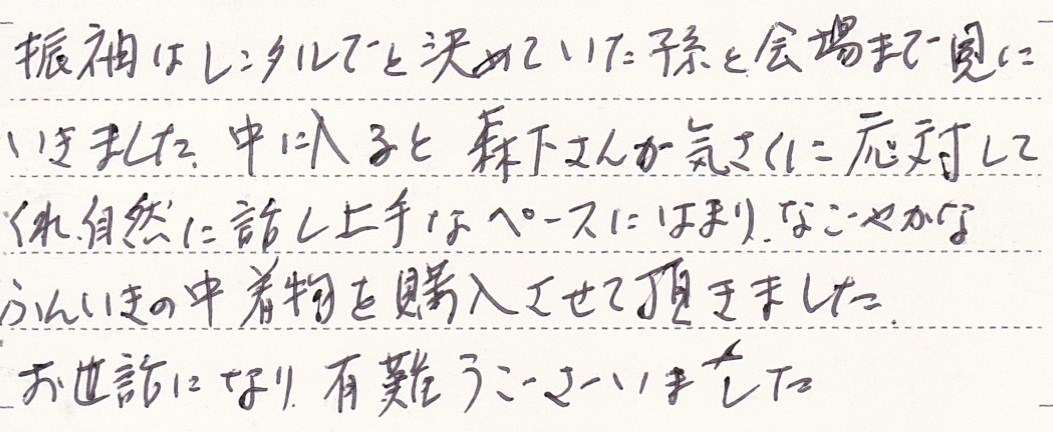 振袖はレンタルでと決めていた孫と会場まで見に
いきました。中に入ると森下さんが気さくに応対して
くれ、自然に話し上手なペースにはまり、なごやかな
ふんいきの中着物を購入させて頂きました。
お世話になり有難うございました